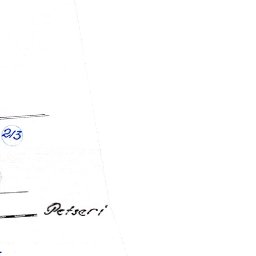 213
Petseri